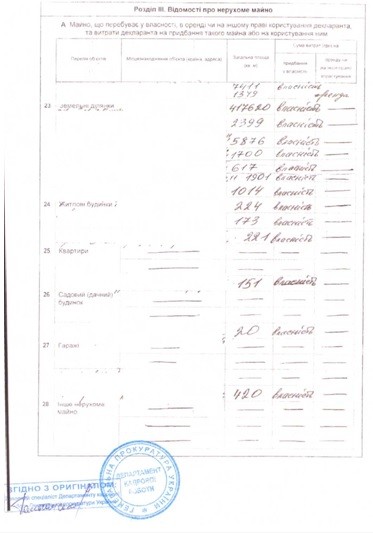 Розділ III. Відомості про нерухоме майно
А. Майно, що перебуває у власності, в оренді чи на іншому праві користування декларанта,
та витрати декларанта на придбання такого майна або на користування ним
Перелік об'єктів
Місцезнаходження об'єкта (країна, адреса)
Загальна площа (кв. м)
придбання у власність
7411 власність
1379 оренда
23 Земельні ділянки
417620 власність —
2399 власність —
5876 власність —
1700 власність —
617 власність —
1901 власність —
1014 власність —
24 Житлові будинки
224 власність —
173 власність —
221 власність —
25 Квартири
151 власність —
26 Садовий (дачний) будинок
20 власність —
27 Гаражі
420 власність —
28 Інше нерухоме майно
ЗГІДНО З ОРИГІНАЛОМ
ГЕНЕРАЛЬНА ПРОКУРАТУРА УКРАЇНИ
ДЕПАРТАМЕНТ
КАДРОВОЇ
РОБОТИ